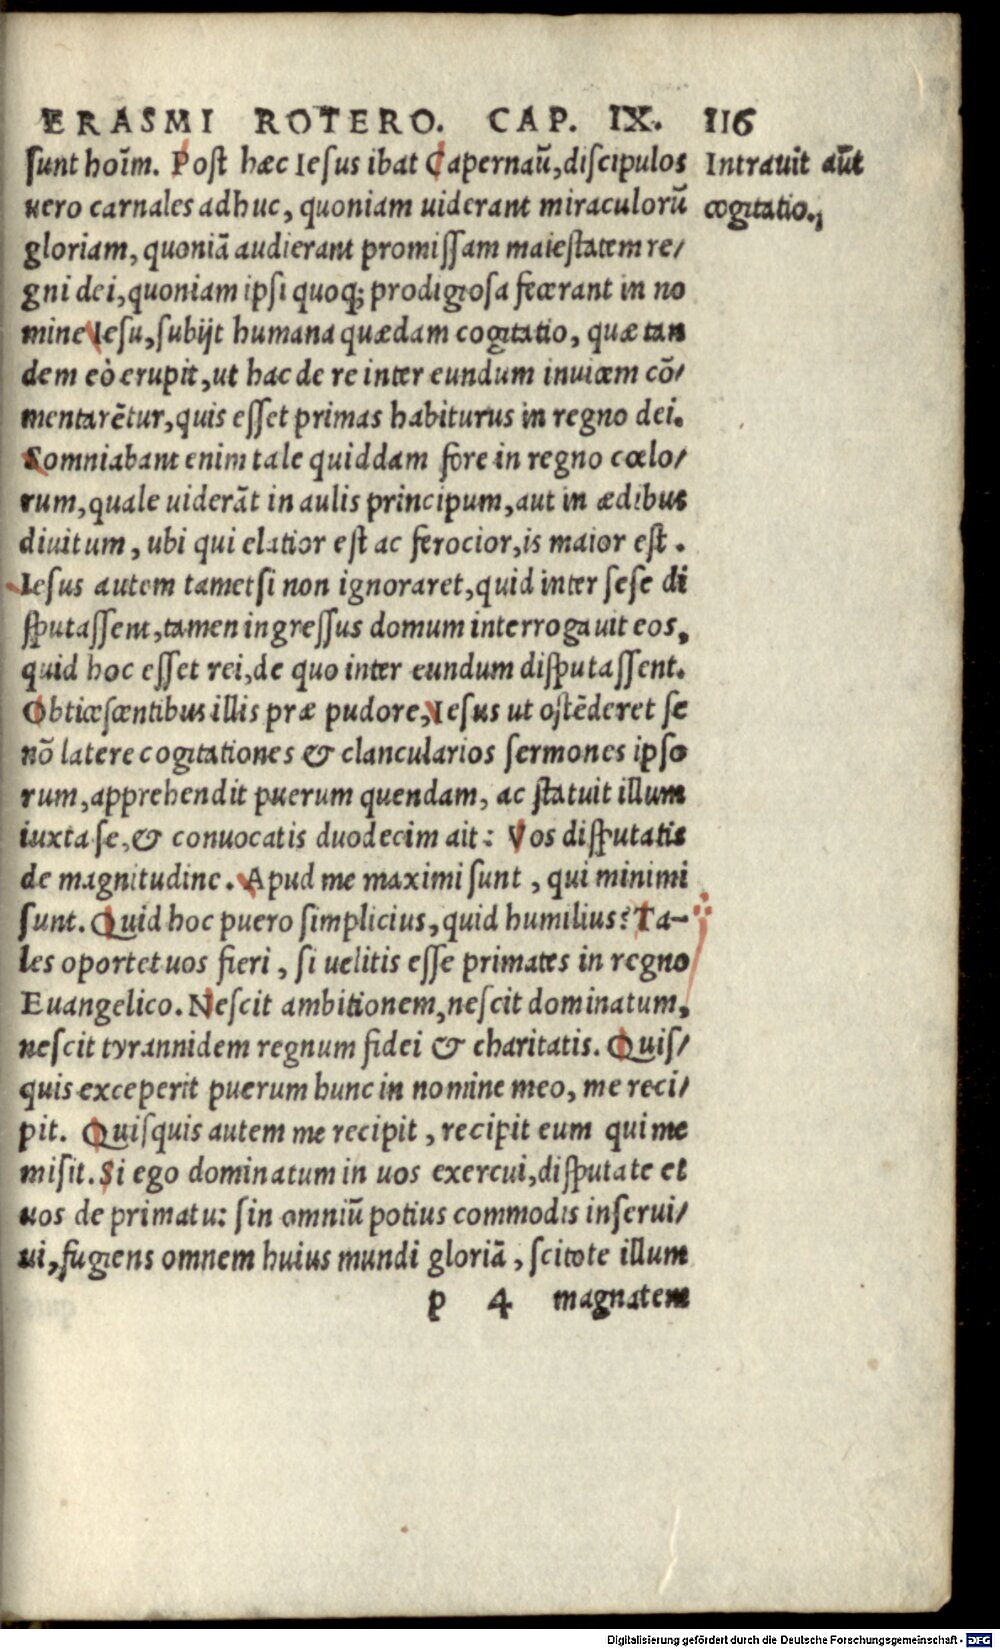 ERASMI ROTERO. CAP. IX. 116
sunt hoīm. Post hæc Iesus ibat Capernaū, discipulos
uero carnales adhuc, quoniam uiderant miraculorū
gloriam, quoniā audierant promissam maiestatem re/
gni dei, quoniam ipsi quoq; prodigiosa fecerant in no
mine Iesu, subijt humana quædam cogitatio, quæ tan
dem eò erupit, ut hac de re inter eundum inuicem cō/
mentarētur, quis esset primas habiturus in regno dei.
Somniabant enim tale quiddam fore in regno cœlo/
rum, quale uiderāt in aulis principum, aut in ædibus
diuitum, ubi qui elatior est ac ferocior, is maior est.
Iesus autem tametsi non ignoraret, quid inter sese di
sputassent, tamen ingressus domum interrogauit eos,
quid hoc esset rei, de quo inter eundum disputassent.
Obticescentibus illis præ pudore, Iesus ut ostēderet se
nō latere cogitationes & clancularios sermones ipso
rum, apprehendit puerum quendam, ac statuit illum
iuxta se, & conuocatis duodecim ait: Vos disputatis
de magnitudine. Apud me maximi sunt, qui minimi
sunt. Quid hoc puero simplicius, quid humilius? Ta-
les oportet uos fieri, si uelitis esse primates in regno
Euangelico. Nescit ambitionem, nescit dominatum,
nescit tyrannidem regnum fidei & charitatis. Quis/
quis exceperit puerum hunc in nomine meo, me reci/
pit. Quisquis autem me recipit, recipit eum qui me
misit. Si ego dominatum in uos exercui, disputate et
uos de primatu: sin omniū potius commodis inserui/
ui, fugiens omnem huius mundi gloriā, scitote illum
p 4 magnatem
Intrauit aūt
cogitatio.
Digitalisierung gefördert durch die Deutsche Forschungsgemeinschaft - DFG